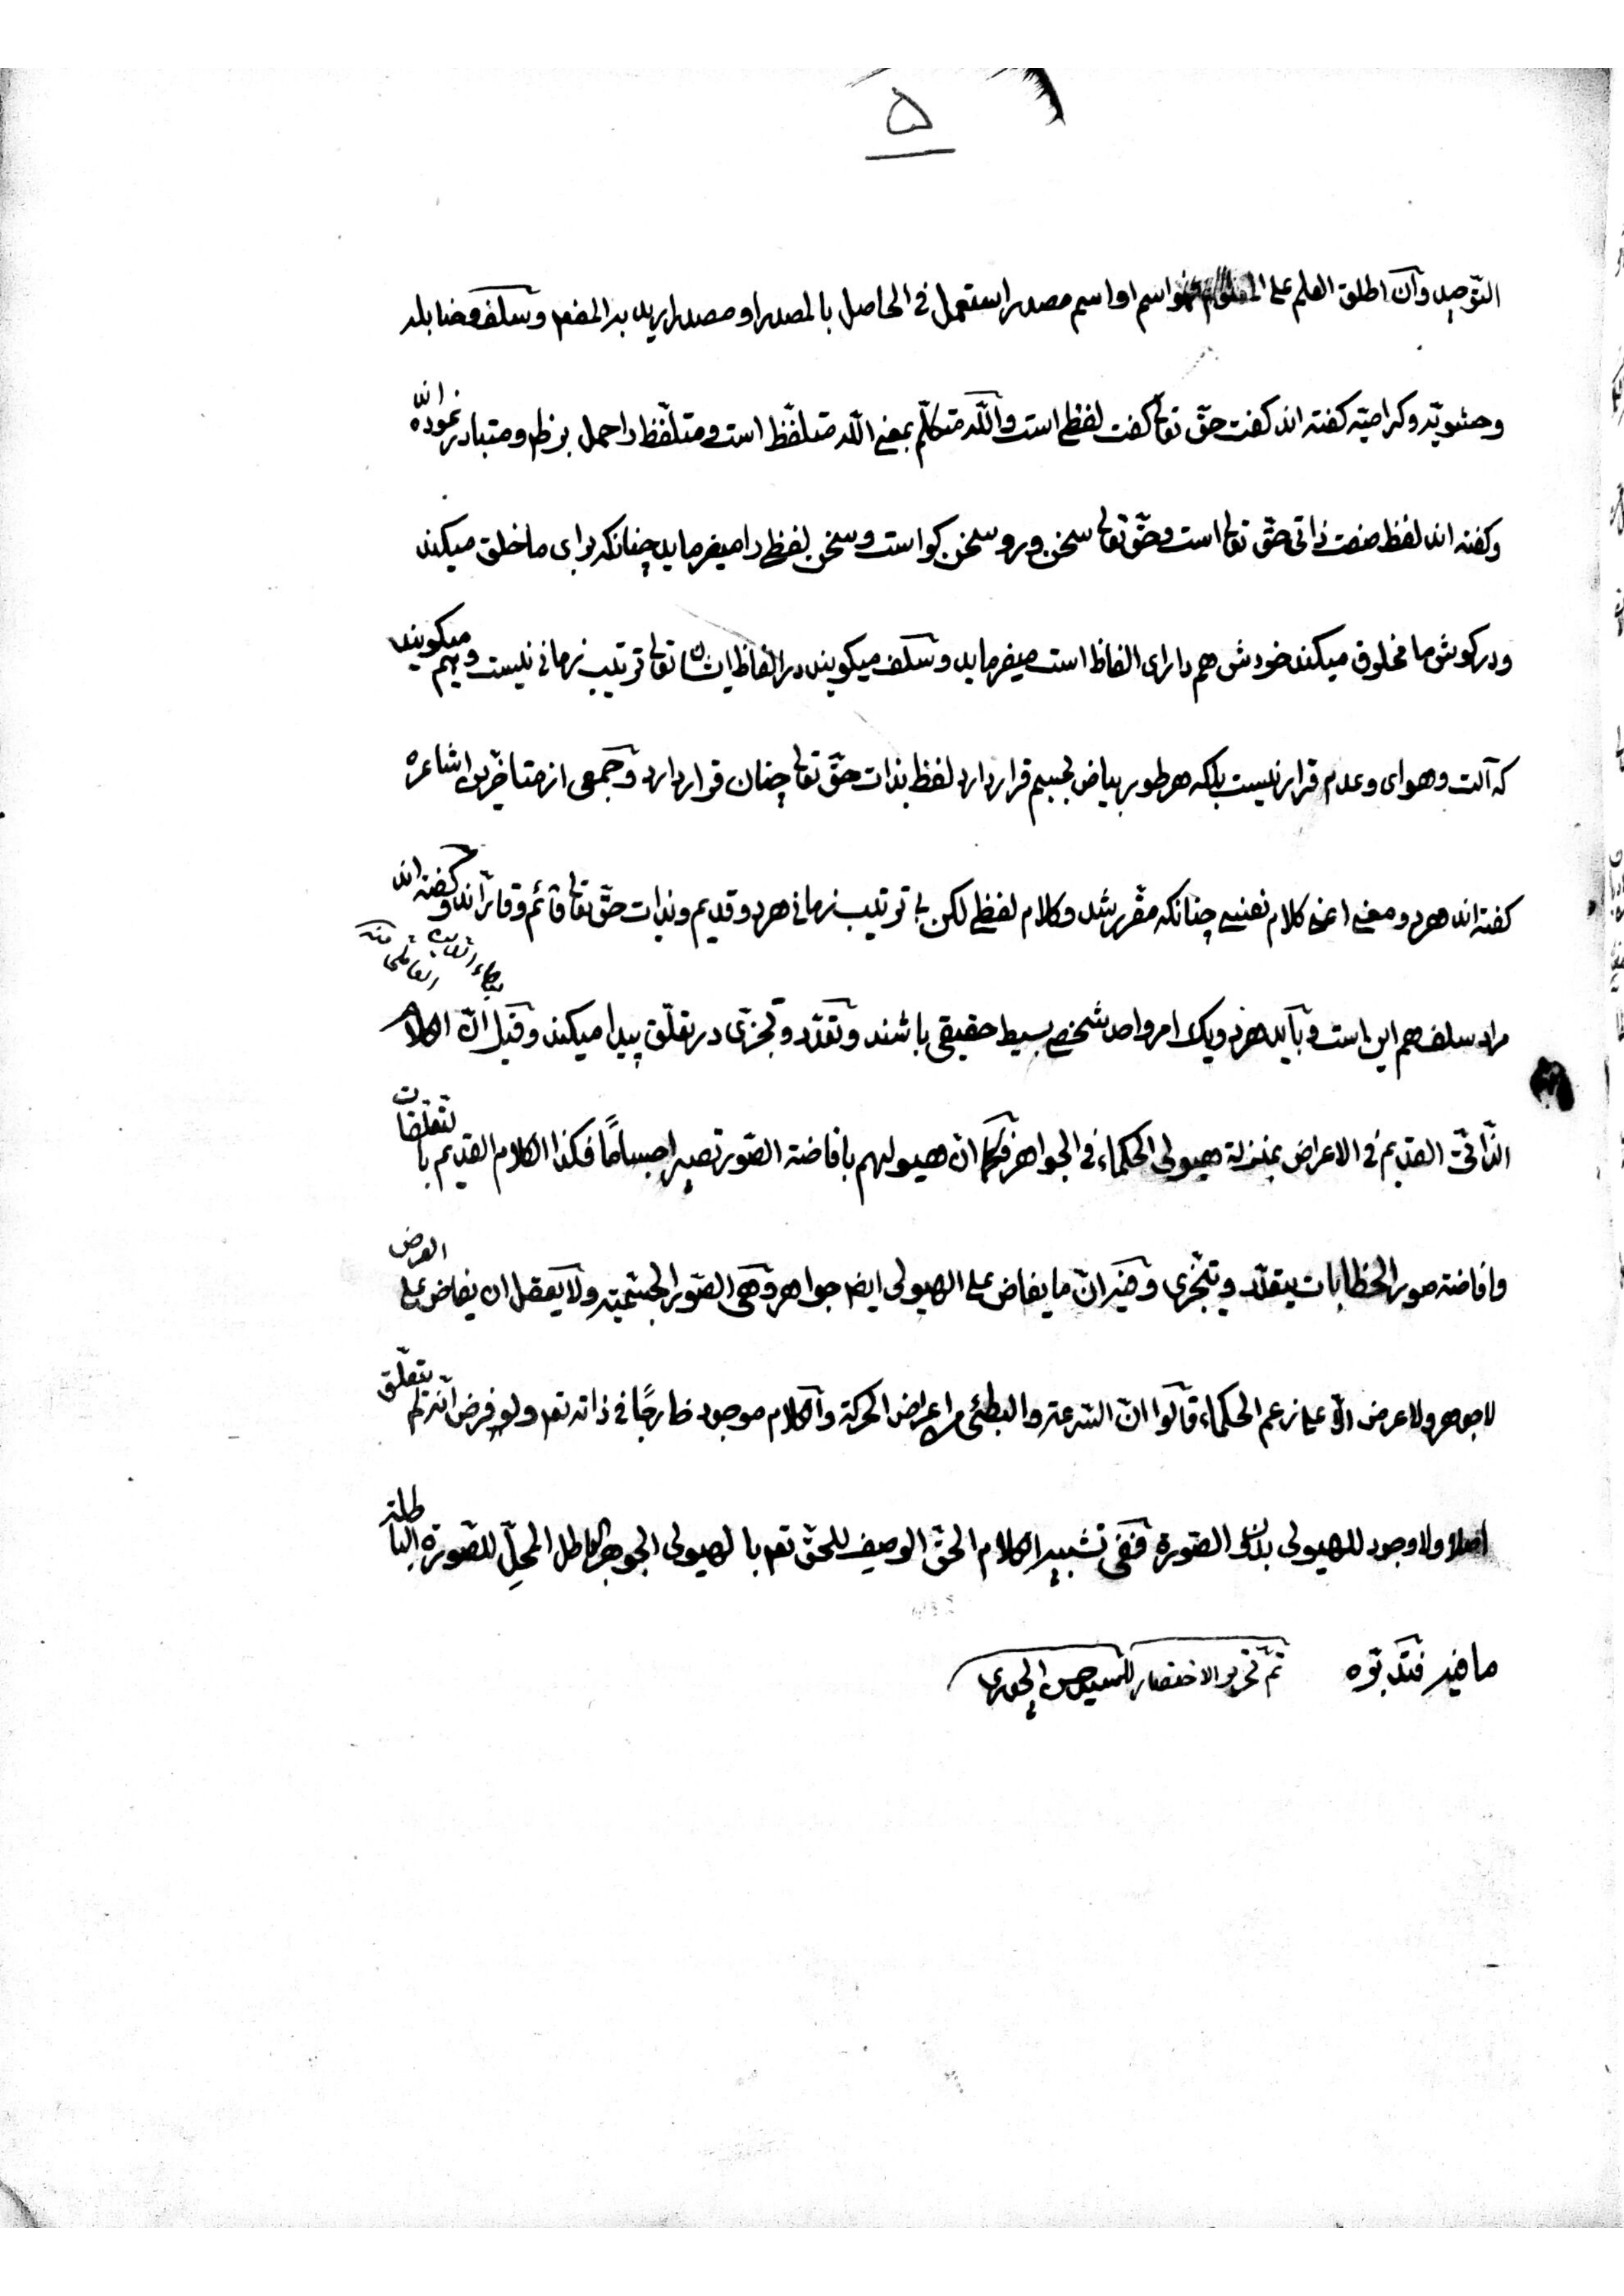 ۵
التوجیه وان اطلق العلم علی المعلوم فهو اسم او اسم مصدر استعمل فی الحاصل بالمصدر او مصدر ارید به المفعم وسلف وحنابله
وحشویه وکرامیّه گفته اند گفت حقّ تعالی گفت لفظی است والله متکلّم بمعنی الله متلفّظ است ومتلفّظ را حمل بر ظاهر ومتبادر نموده اند
وگفته اند لفظ صفت ذاتی حقّ تعالی است وحقّ تعالی سخن ور وسخن گو است وسخن لفظی را میفرماید چنانکه برای ما خلق میکند
ودر گوش ما مخلوق میکند خودش هم دارای الفاظ است میفرماید وسلف میگویند در الفاظ ایشان تعالی ترتیب زمانی نیست وهم میگویند
که آلت وهوای وعدم قرار نیست بلکه هر طور بیاض بجسم قرار دارد لفظ بذات حقّ تعالی چنان قرار دارد وجمعی از متاخّرین اشاعره
گفته اند هردو معنی اعنی کلام نفسی چنانکه مقرّر شد وکلام لفظی لکن بی ترتیب زمانی هردو قدیم وبذات حقّ تعالی قائم وقارّ اند وگفته اند
مراد سلف هم این است وباید هردو یک امر واحد شخصی بسیط حقیقی باشند وتعدّد وتجزّی در تعلّق پیدا میکند وقیل انّ الکلام
الذّاتیّ القدیم فی الاعراض بمنزلة هیولی الحکماء فی الجواهر فکما انّ هیولیهم بافاضة الصّور تصیر اجساماً فکذا الکلام القدیم بالتعلّقات
وافاضة صور الخطابات یتعدّد ویتجزّی وفیه انّ ما یفاض علی الهیولی ایضا جواهر وهی الصّور الجسمیّه ولا یعقل ان یفاض علی العرض
لا جوهر ولا عرض الّا علی زعم الحکماء قالوا انّ السّرعة والبطئی من اعراض الحرکة والکلام موجود خارجاً فی ذاته تعم ولو فرض انّه لم یتعلّق
اصلا ولا وجود للهیولی بدون الصّورة ففی تشبیه الکلام الحقّ الوصف للحقّ تعم بالهیولی الجوهر الباطل المحلّ للصّورة الباطلة
ما فیه فتدبّره تمّ تحریر الاختصار للسید حسن